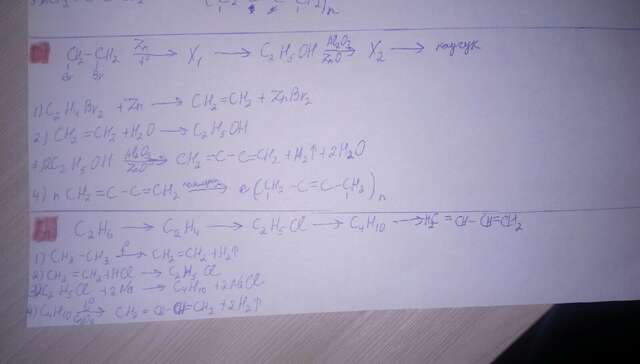 CH₂–CH₂ Zn/t° → X₁ → C₂H₅OH Al₂O₃/ZnO → X₂ → каучук
Br Br
1) C₂H₄Br₂ + Zn → CH₂=CH₂ + ZnBr₂
2) CH₂=CH₂ + H₂O → C₂H₅OH
C₂H₅OH Al₂O₃/ZnO → CH₂=C–C=CH₂ + H₂↑ + 2H₂O
4) n CH₂=C–C=CH₂ → (CH₂–C=C–CH₂)n
C₂H₆ → C₂H₄ → C₂H₅Cl → C₄H₁₀ → H₂C=CH–CH=CH₂
1) CH₃–CH₃ → CH₂=CH₂ + H₂↑
2) CH₂=CH₂ + HCl → C₂H₅Cl
3) C₂H₅Cl + 2Na → C₄H₁₀ + 2NaCl
4) C₄H₁₀ t° → CH₂=CH–CH=CH₂ + 2H₂↑